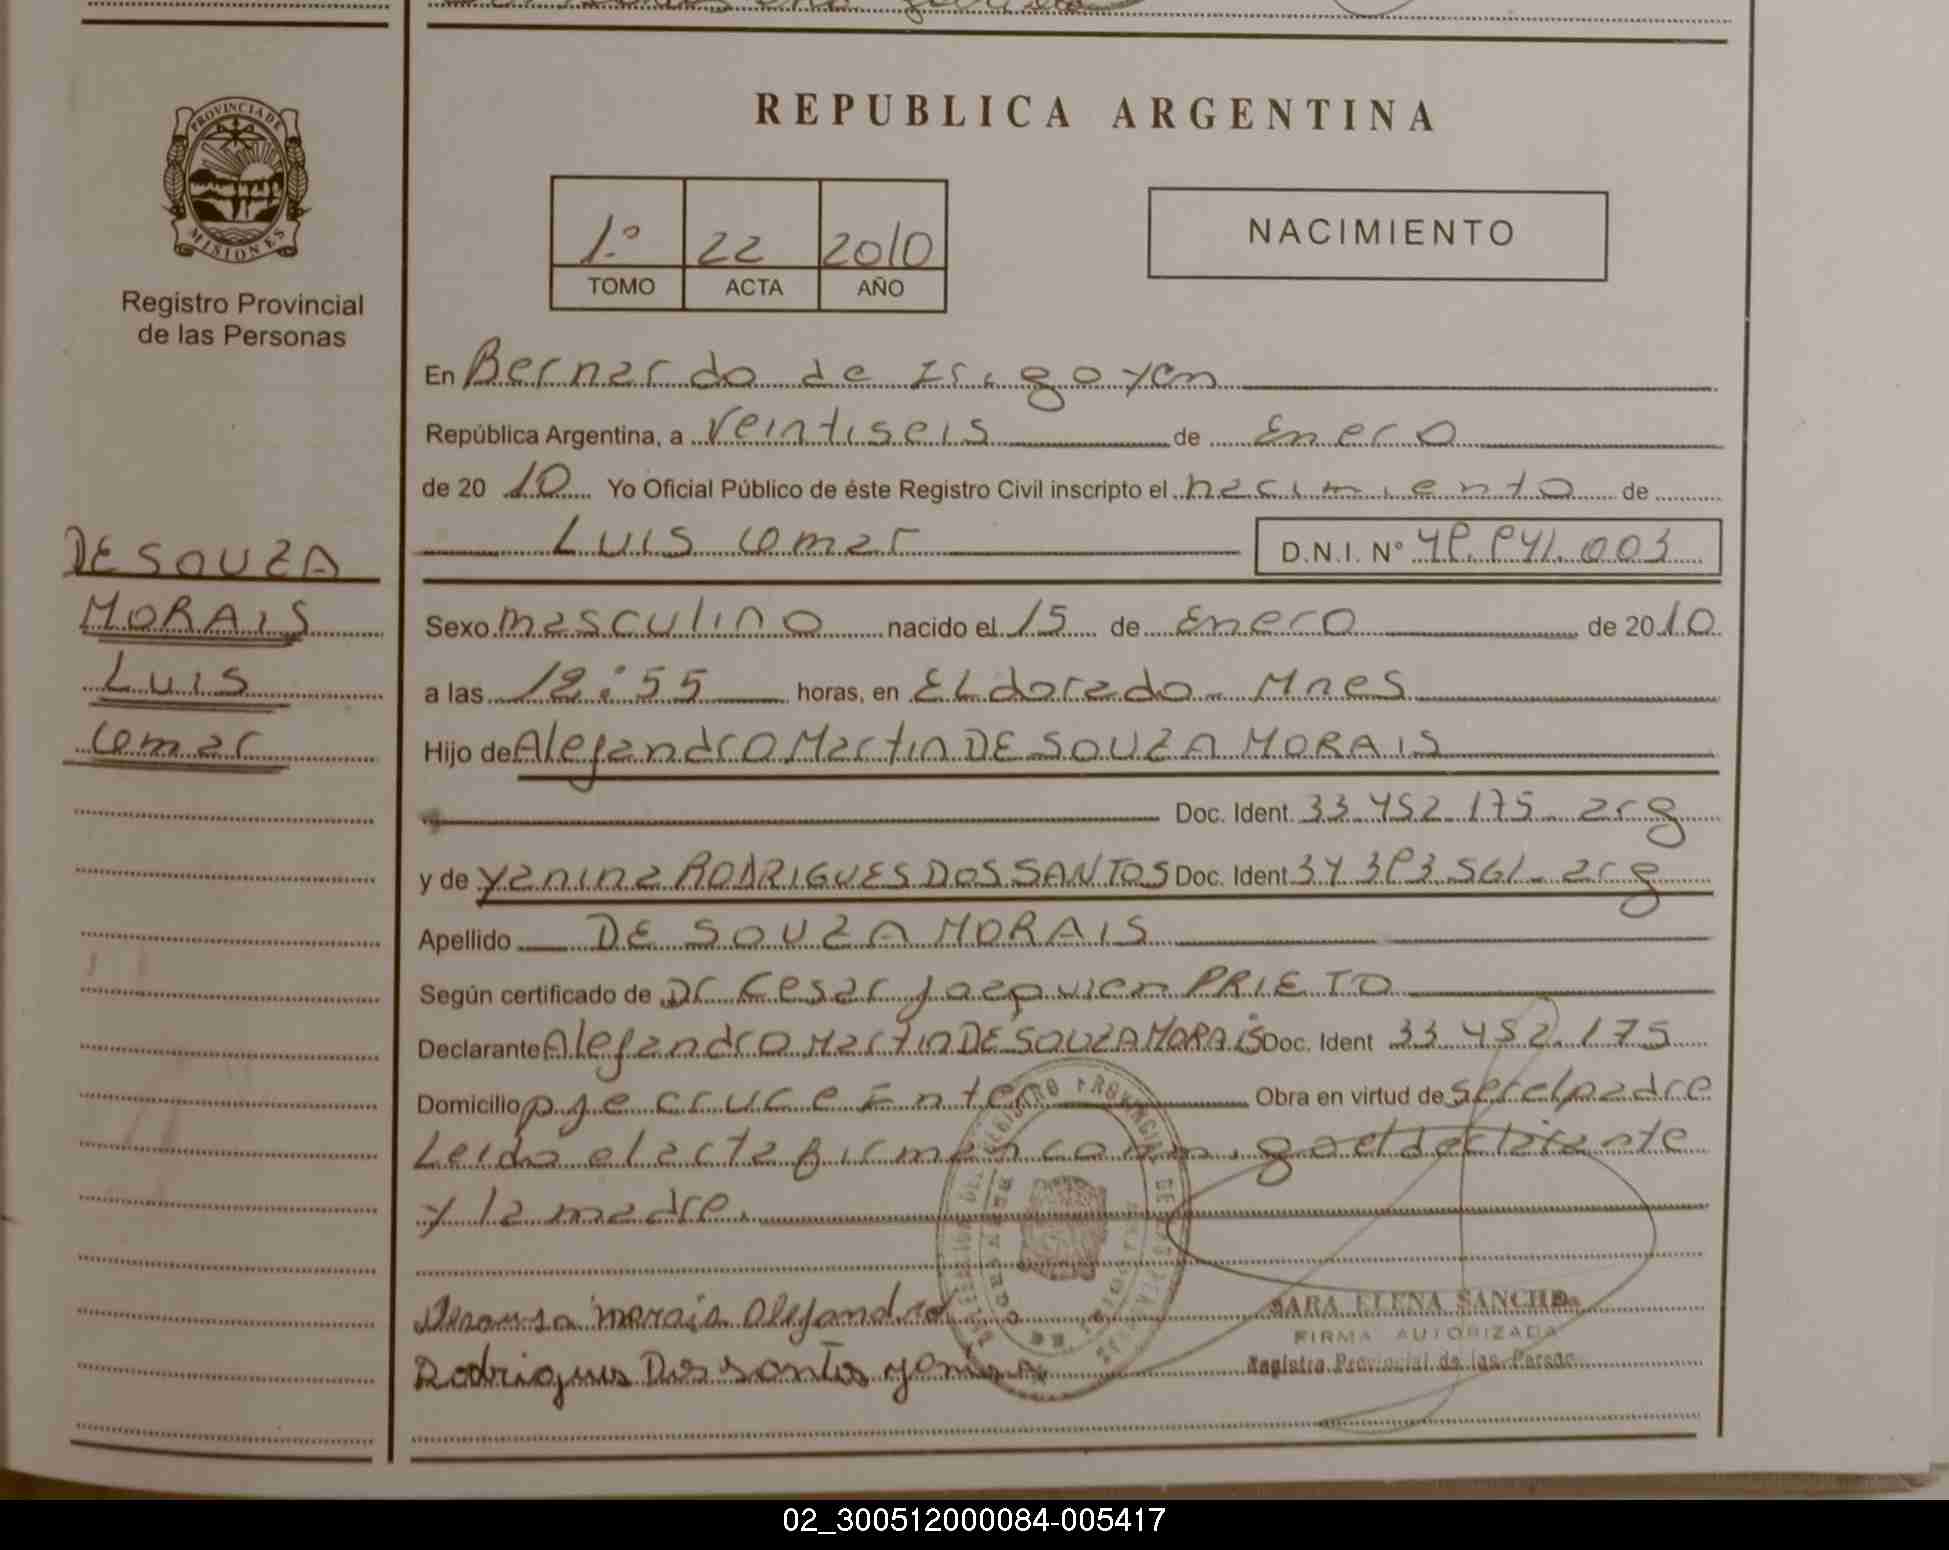 PROVINCIA DE
MISIONES
Registro Provincial
de las Personas
DE SOUZA
MORAIS
Luis
Comar
REPUBLICA ARGENTINA
1.º 22 2010
TOMO ACTA AÑO
NACIMIENTO
En Bernardo de Irigoyen
República Argentina, a Veintiseis de Enero
de 20 10 Yo Oficial Público de éste Registro Civil inscripto el nacimiento de
Luis Comar D.N.I. Nº 49.841.003
Sexo masculino nacido el 15 de Enero de 2010
a las 12:55 horas, en ELdorado - Mnes
Hijo de Alejandro Martin DE SOUZA MORAIS
Doc. Ident. 33.452.175 - arg
y de Yanina RODRIGUES DOS SANTOS Doc. Ident 34.383.561 - arg
Apellido DE SOUZA MORAIS
Según certificado de Dr Cesar Joaquien PRIETO
Declarante Alejandro Martin DE SOUZA MORAIS Doc. Ident 33.452.175
Domicilio pje cruce Enter Obra en virtud de ser el padre
Leida el acta firman conmigo el declarante
y la madre.
Desouza morais Alejandro
Rodrigues Dos santos yanina
SARA ELENA SANCHE
FIRMA AUTORIZADA
Registro Provincial de las Person
02_300512000084-005417